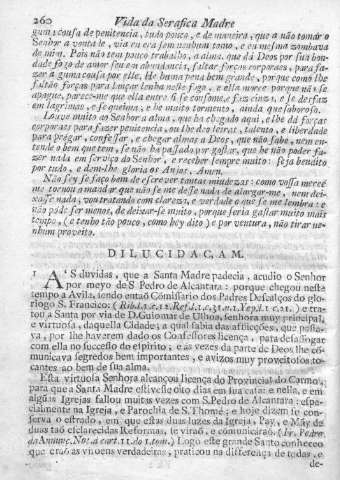 260 Vida da Serafica Madre
guma cousa de penitencia, tudo pouco, e de maneira, que a não tomar o
Senhor a vontade, via eu era sem nenhum tomo, e eu mesma zombava
de mim. Pois não tem pouco trabalho, a alma, que dá Deos por sua bon-
dade fogo de amor seu em abundancia, faltar forças corporaes, para fa-
zer alguma cousa por elle. He huma pena bem grande, porque como lhe
faltão forças para lançar lenha neste fogo, e ella morre porque não se
apague, parece-me que ella entre si se consome, e faz cinza, e se desfaz
em lagrimas, e se queima; e he muito tormento, ainda que saboroso.
Louve muito ao Senhor a alma, que ha chegado aqui, e lhe dá forças
corporaes para fazer penitencia, ou lhe deo letras, talento, e liberdade
para pregar, confessar, e chegar almas a Deos, que não sabe, nem en-
tende o bem que tem, se não ha passado por gostar, que he não poder fa-
zer nada em serviço do Senhor, e receber sempre muito: seja bendito
por tudo, e dem-lhe gloria os Anjos. Amen.
Não sey se faço bem de escrever tantas miudezas: como vossa mercê
me tornou a mandar que não se me desse nada de alargar-me, nem dei-
xasse nada, vou tratando com clareza, e verdade o que se me lembra: e
não póde ser menos, de deixar-se muito, porque seria gastar muito mais
tempo, (e tenho tão pouco, como hey dito) e por ventura, não tirar ne-
nhum proveito.
DILUCIDAÇAM.
1 A'S duvidas, que a Santa Madre padecia, acudio o Senhor
por meyo de S. Pedro de Alcantara: porque chegou neste
tempo a Avila, sendo entaõ Cõmissario dos Padres Descalços do glo-
rioso S. Francisco: e tra-
tou a Santa por via de D. Guiomar de Ulhoa, senhora muy principal,
e virtuosa, daquella Cidade; a qual sabia das afflicções, que passa-
va, por lhe haverem dado os Confessores licença, para desaffogar
com ella no successo de espirito; e ás vezes da parte de Deos lhe cõ-
municava segredos bem importantes, e avizos muy proveitosos to-
cantes ao bem de sua alma.
Esta virtuosa Senhora alcançou licença do Provincial do Carmo,
para que a Santa Madre estivesse oito dias em sua casa: e nella, e em
alguas Igrejas fallou muitas vezes com S. Pedro de Alcantara: espe-
cialmente na Igreja, e Parochia de S. Thomé; e hoje dizem se con-
serva o estrado, em que estas duas luzes da Igreja, Pay, e Mãy de
duas taõ esclarecidas Reformas, se viraõ, e comunicaraõ. (Fr. Pedro
da Annunc. Not. á cart. 11. do 1. tom.) Logo este grande Santo conheceo
que eraõ as visoens verdadeiras, praticou na differença de todas, e
de-